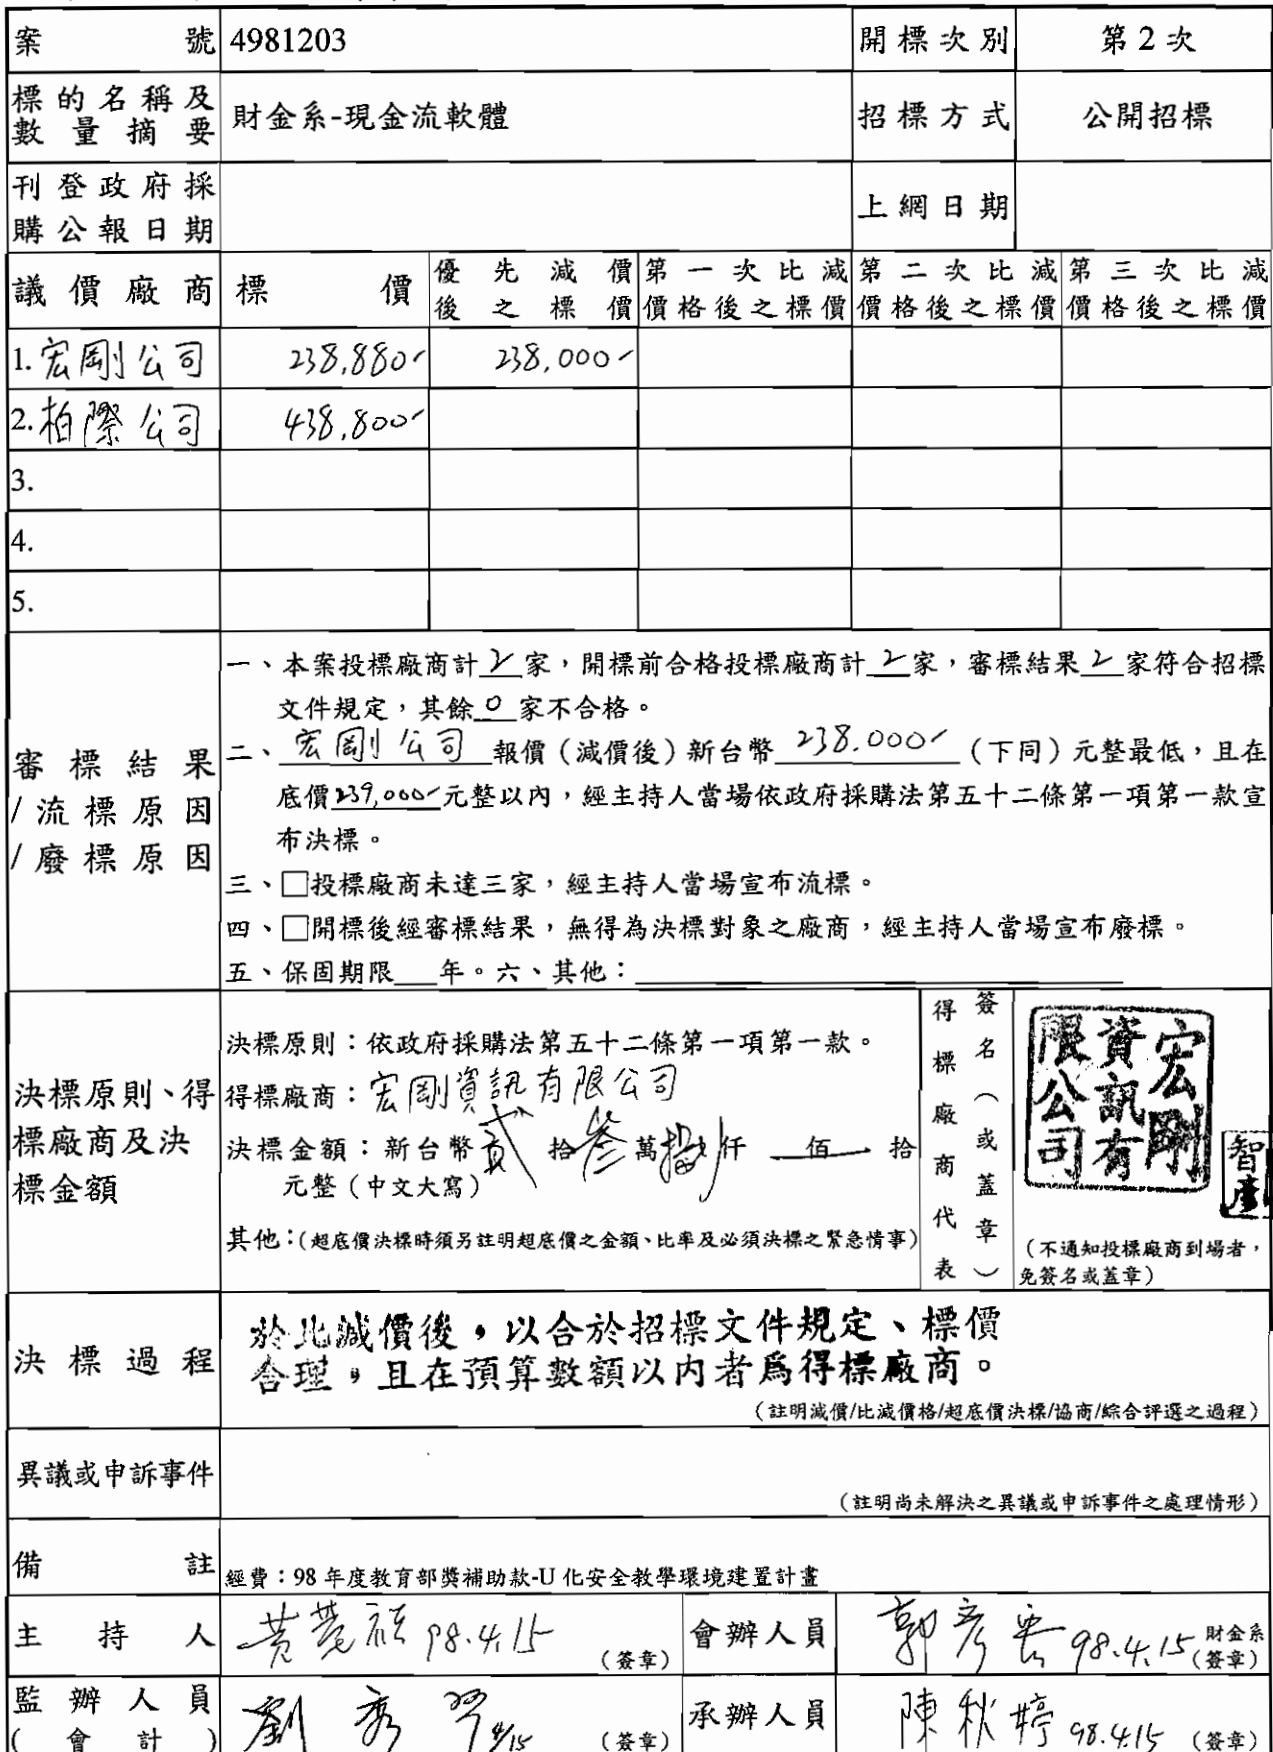 案號 4981203 開標次別 第2次
標的名稱及數量摘要 財金系-現金流軟體 招標方式 公開招標
刊登政府採購公報日期 上網日期
議價廠商 標價 優先減價後之標價 第一次比減價格後之標價 第二次比減價格後之標價 第三次比減價格後之標價
1. 宏剛公司 238,880 238,000
2. 柏際公司 438,800
3.
4.
5.
審標結果/流標原因/廢標原因
一、本案投標廠商計2家,開標前合格投標廠商計2家,審標結果2家符合招標
文件規定,其餘0家不合格。
二、宏剛公司報價(減價後)新台幣238,000(下同)元整最低,且在
底價239,000元整以內,經主持人當場依政府採購法第五十二條第一項第一款宣
布決標。
三、□投標廠商未達三家,經主持人當場宣布流標。
四、□開標後經審標結果,無得為決標對象之廠商,經主持人當場宣布廢標。
五、保固期限___年。六、其他:
決標原則、得標廠商及決標金額
決標原則:依政府採購法第五十二條第一項第一款。
得標廠商:宏剛資訊有限公司
決標金額:新台幣貳拾叁萬捌仟 佰 拾
元整(中文大寫)
其他:(超底價決標時須另註明超底價之金額、比率及必須決標之緊急情事)
得標廠商代表
簽名(或蓋章)
宏剛資訊有限公司
(不通知投標廠商到場者,
免簽名或蓋章)
決標過程
於比減價後,以合於招標文件規定、標價
合理,且在預算數額以內者為得標廠商。
(註明減價/比減價格/超底價決標/協商/綜合評選之過程)
異議或申訴事件
(註明尚未解決之異議或申訴事件之處理情形)
備註 經費:98年度教育部獎補助款-U化安全教學環境建置計畫
主持人 98.4.15 (簽章) 會辦人員 郭彥 98.4.15 財金系(簽章)
監辦人員(會計) 劉秀 4/15 (簽章) 承辦人員 陳秋婷 98.4.15 (簽章)